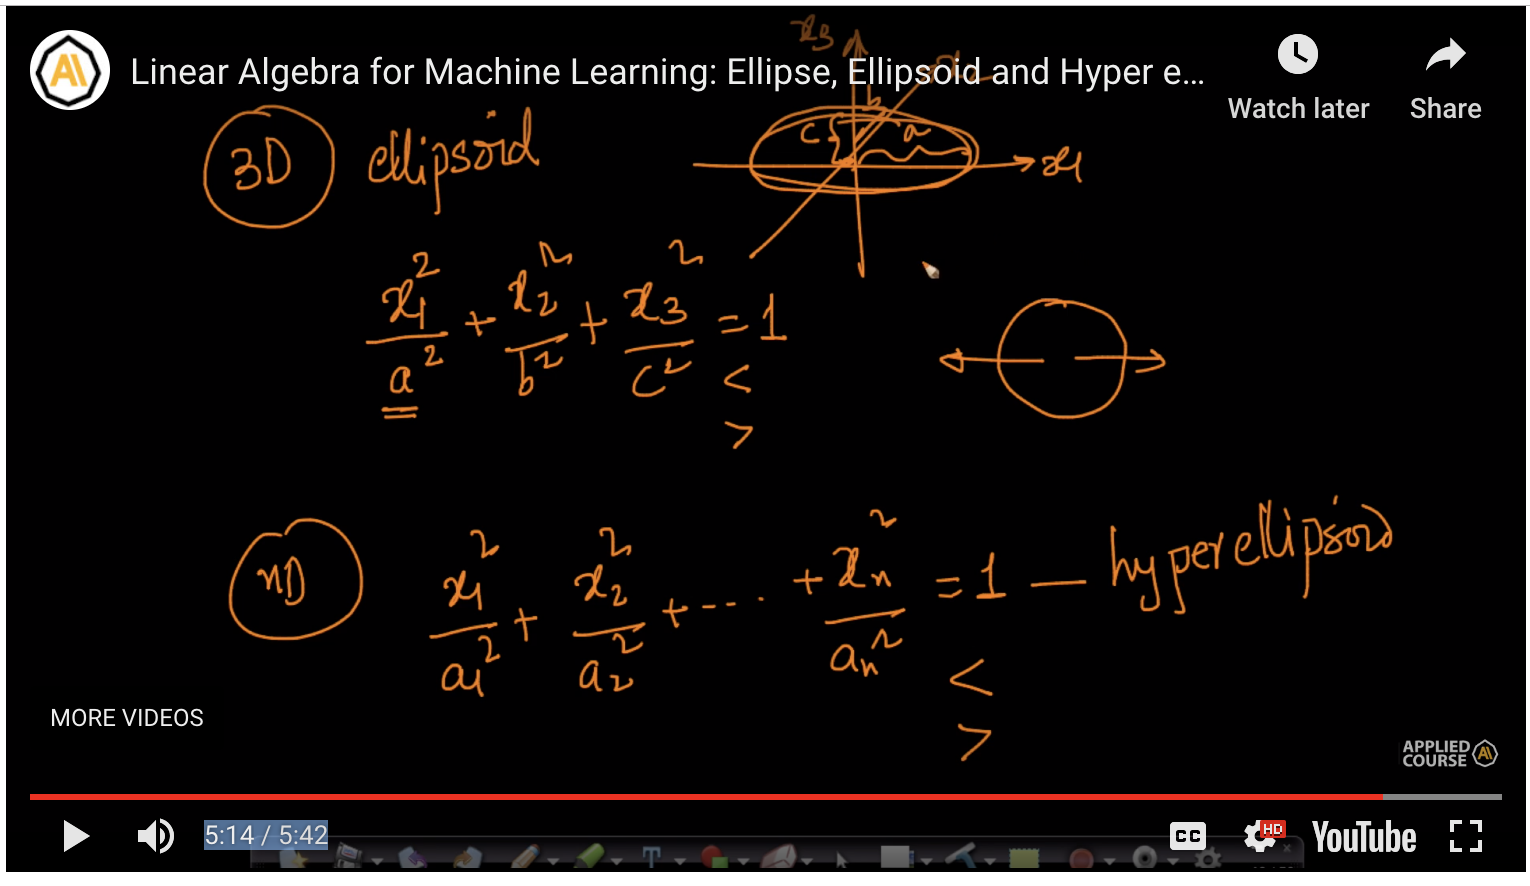 x3
Linear Algebra for Machine Learning: Ellipse, Ellipsoid and Hyper e...
Watch later
Share
3D ellipsoid
b
c a
x1
x1²/a² + x2²/b² + x3²/c² = 1
<
>
nD x1²/a1² + x2²/a2² + ---. + xn²/an² = 1 — hyperellipsoid
<
>
MORE VIDEOS
APPLIED
COURSE
5:14 / 5:42
CC
HD
YouTube
T